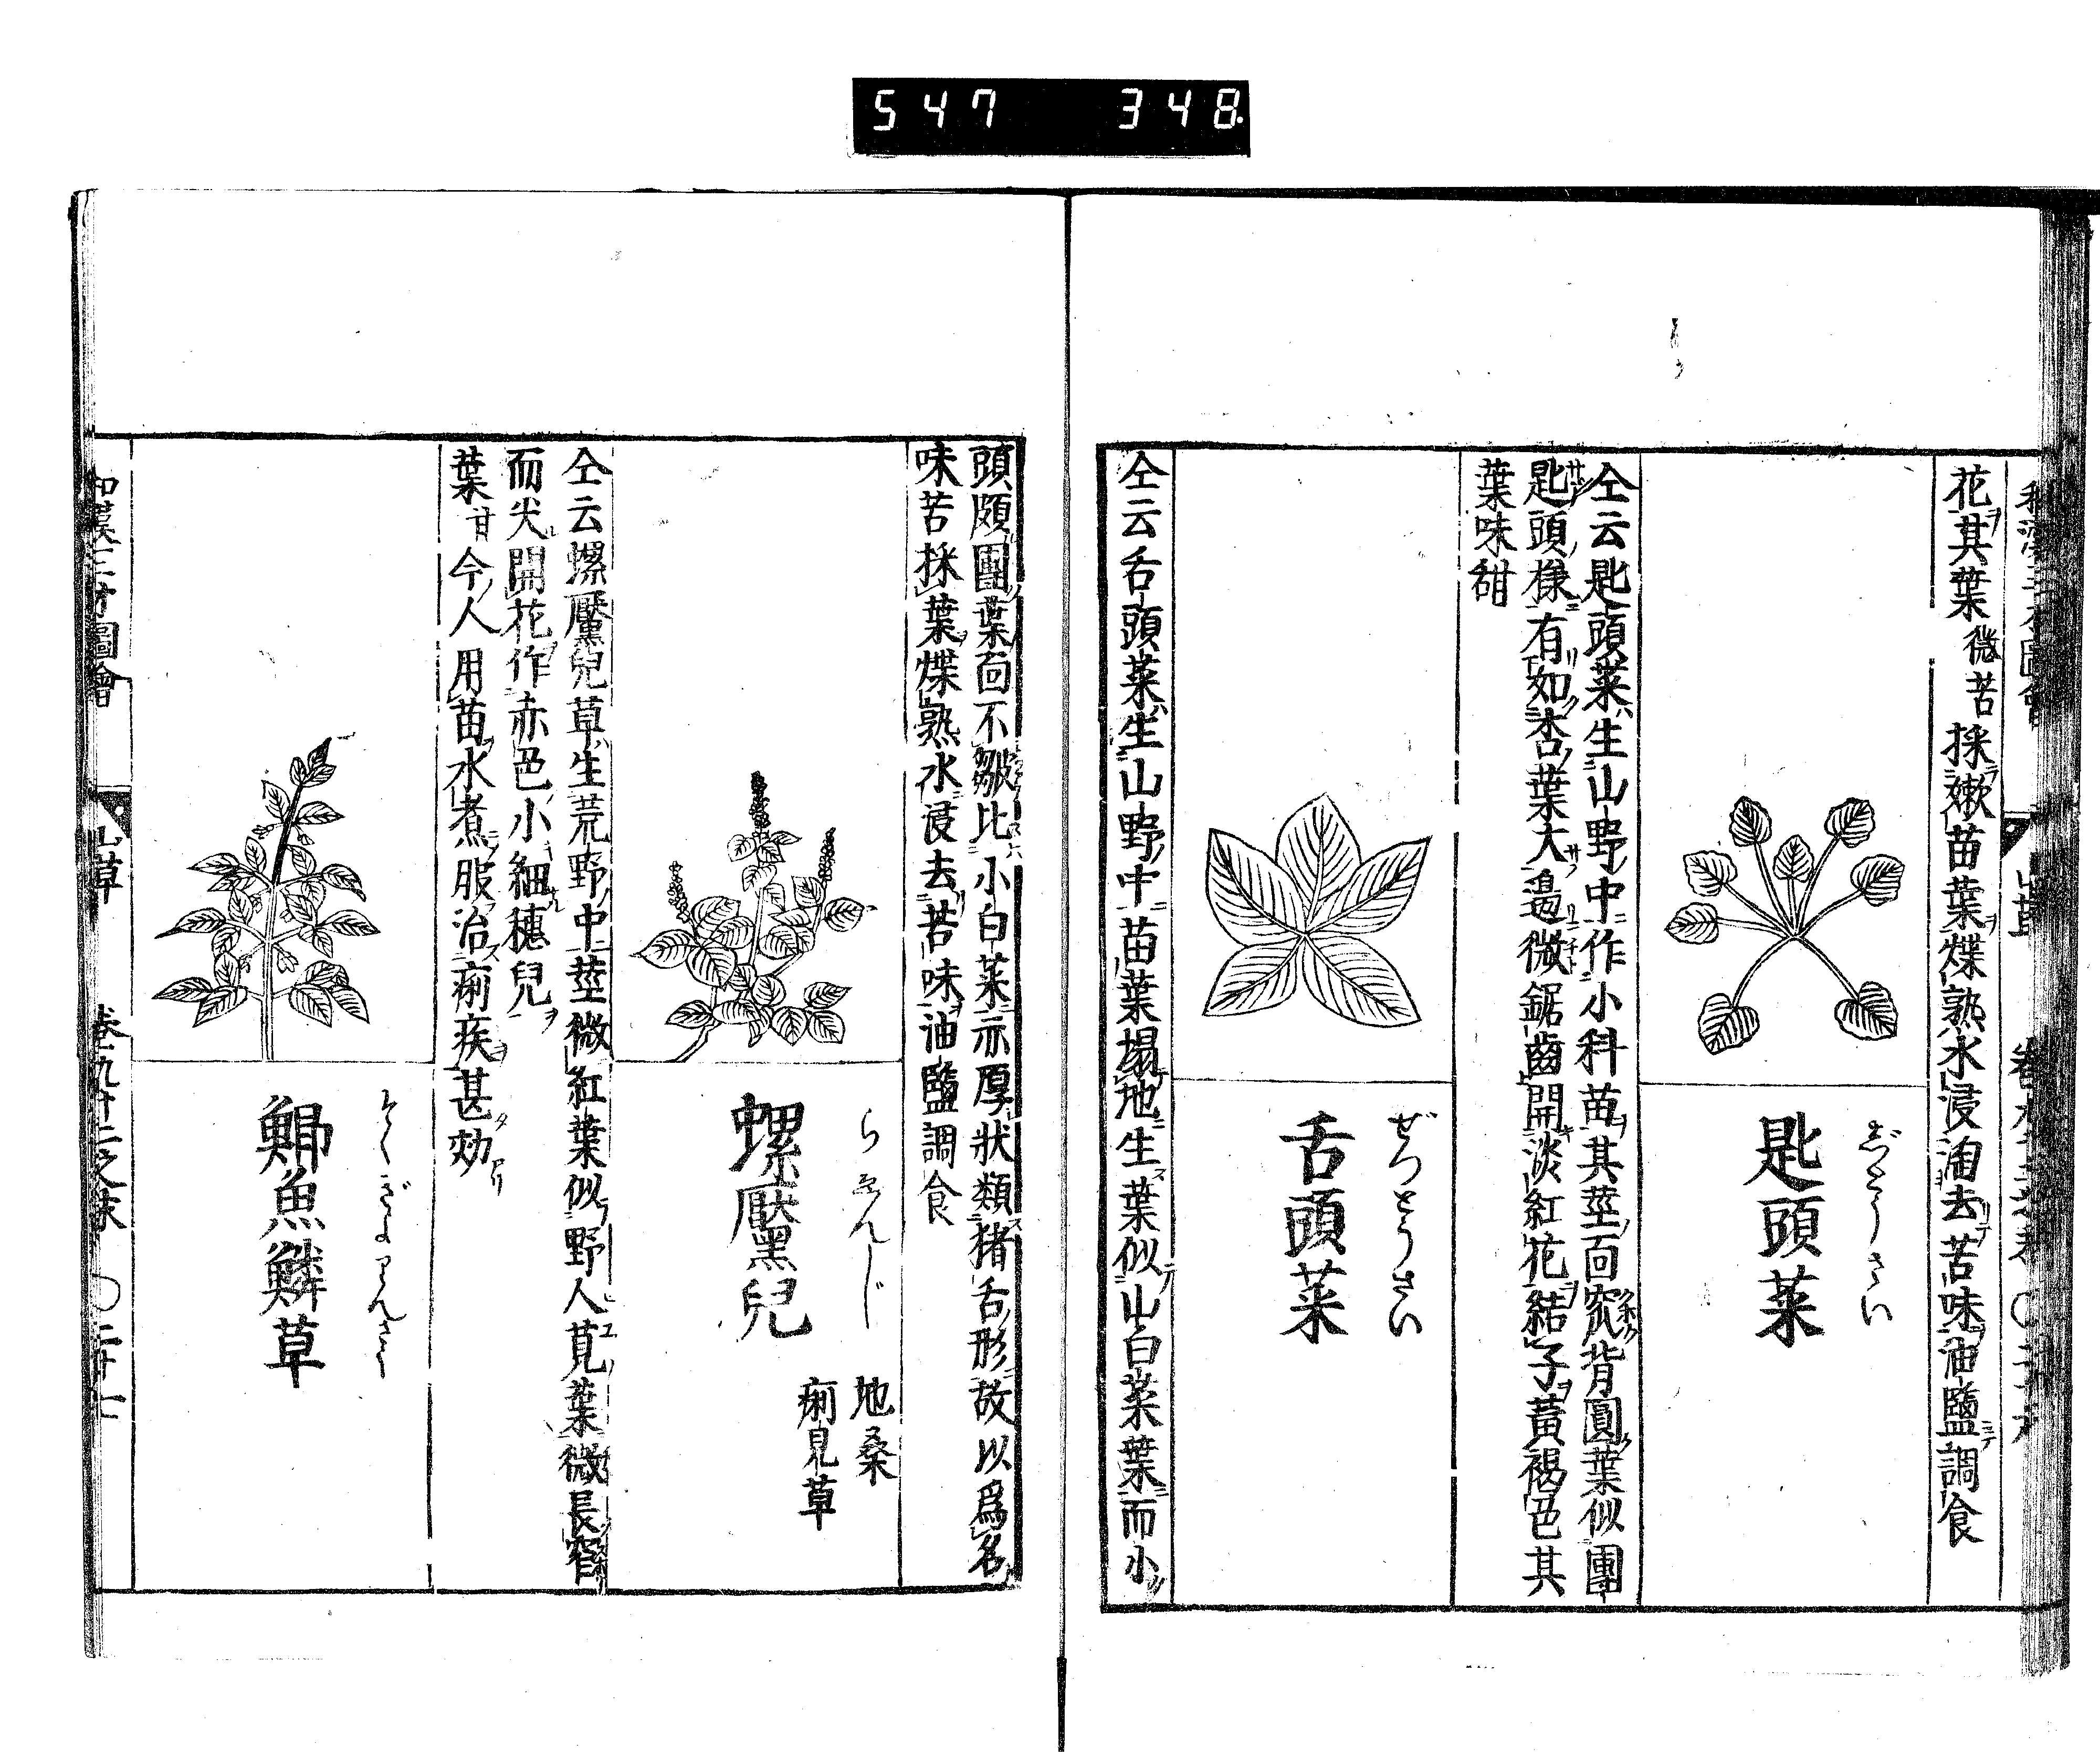 547 348
花其葉微苦採嫩苗葉煠熟水浸淘去苦味油鹽調食
匙頭菜
仝云匙頭菜生山野中作小科苗其莖面窊背圓葉似團
匙頭樣有如杏葉大邊微鋸齒開淡紅花結子黃褐色其
葉味甜
ぜつとうさい
舌頭菜
仝云舌頭菜生山野中苗葉塌地生葉似山白菜葉而小
頭頗團葉面不皺比小白菜亦厚狀類猪舌形故以爲名
味苦採葉煠熟水浸去苦味油鹽調食
らゑんじ
螺黶兒
地桑
痢見草
仝云螺黶兒草生荒野中莖微紅葉似野人莧葉微長窄
而尖開花作赤色小細穗兒
葉甘今人用苗水煮服治痢疾甚効
そくぎよりんさう
魚鱗草
和漢三才圖會 山草 卷九十二之末 〇二十七